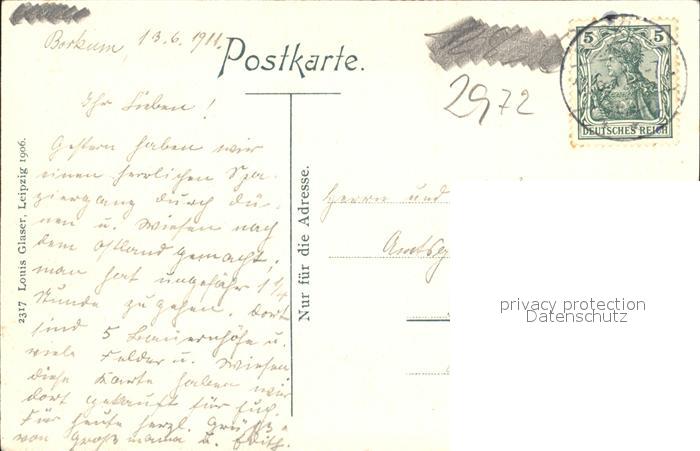 Borkum, 13.6.1911.
Postkarte.
2972
5 5
DEUTSCHES REICH
Ihr Lieben!
Gestern haben wir
einen herrlichen Spa-
ziergang durch Dü-
nen u. Wiesen nach
dem Ostland gemacht,
man hat ungefähr 1 1/4
Stunde zu gehen. Dort
sind 5 Bauernhöfe u.
viele Felder u. Wiesen
diese Karte haben wir
dort gekauft für Euch.
Für heute herzl. Grüße
von Großmama u. Edith.
2317 Louis Glaser, Leipzig 1906.
Nur für die Adresse.
Herrn und
Amtsg
privacy protection
Datenschutz